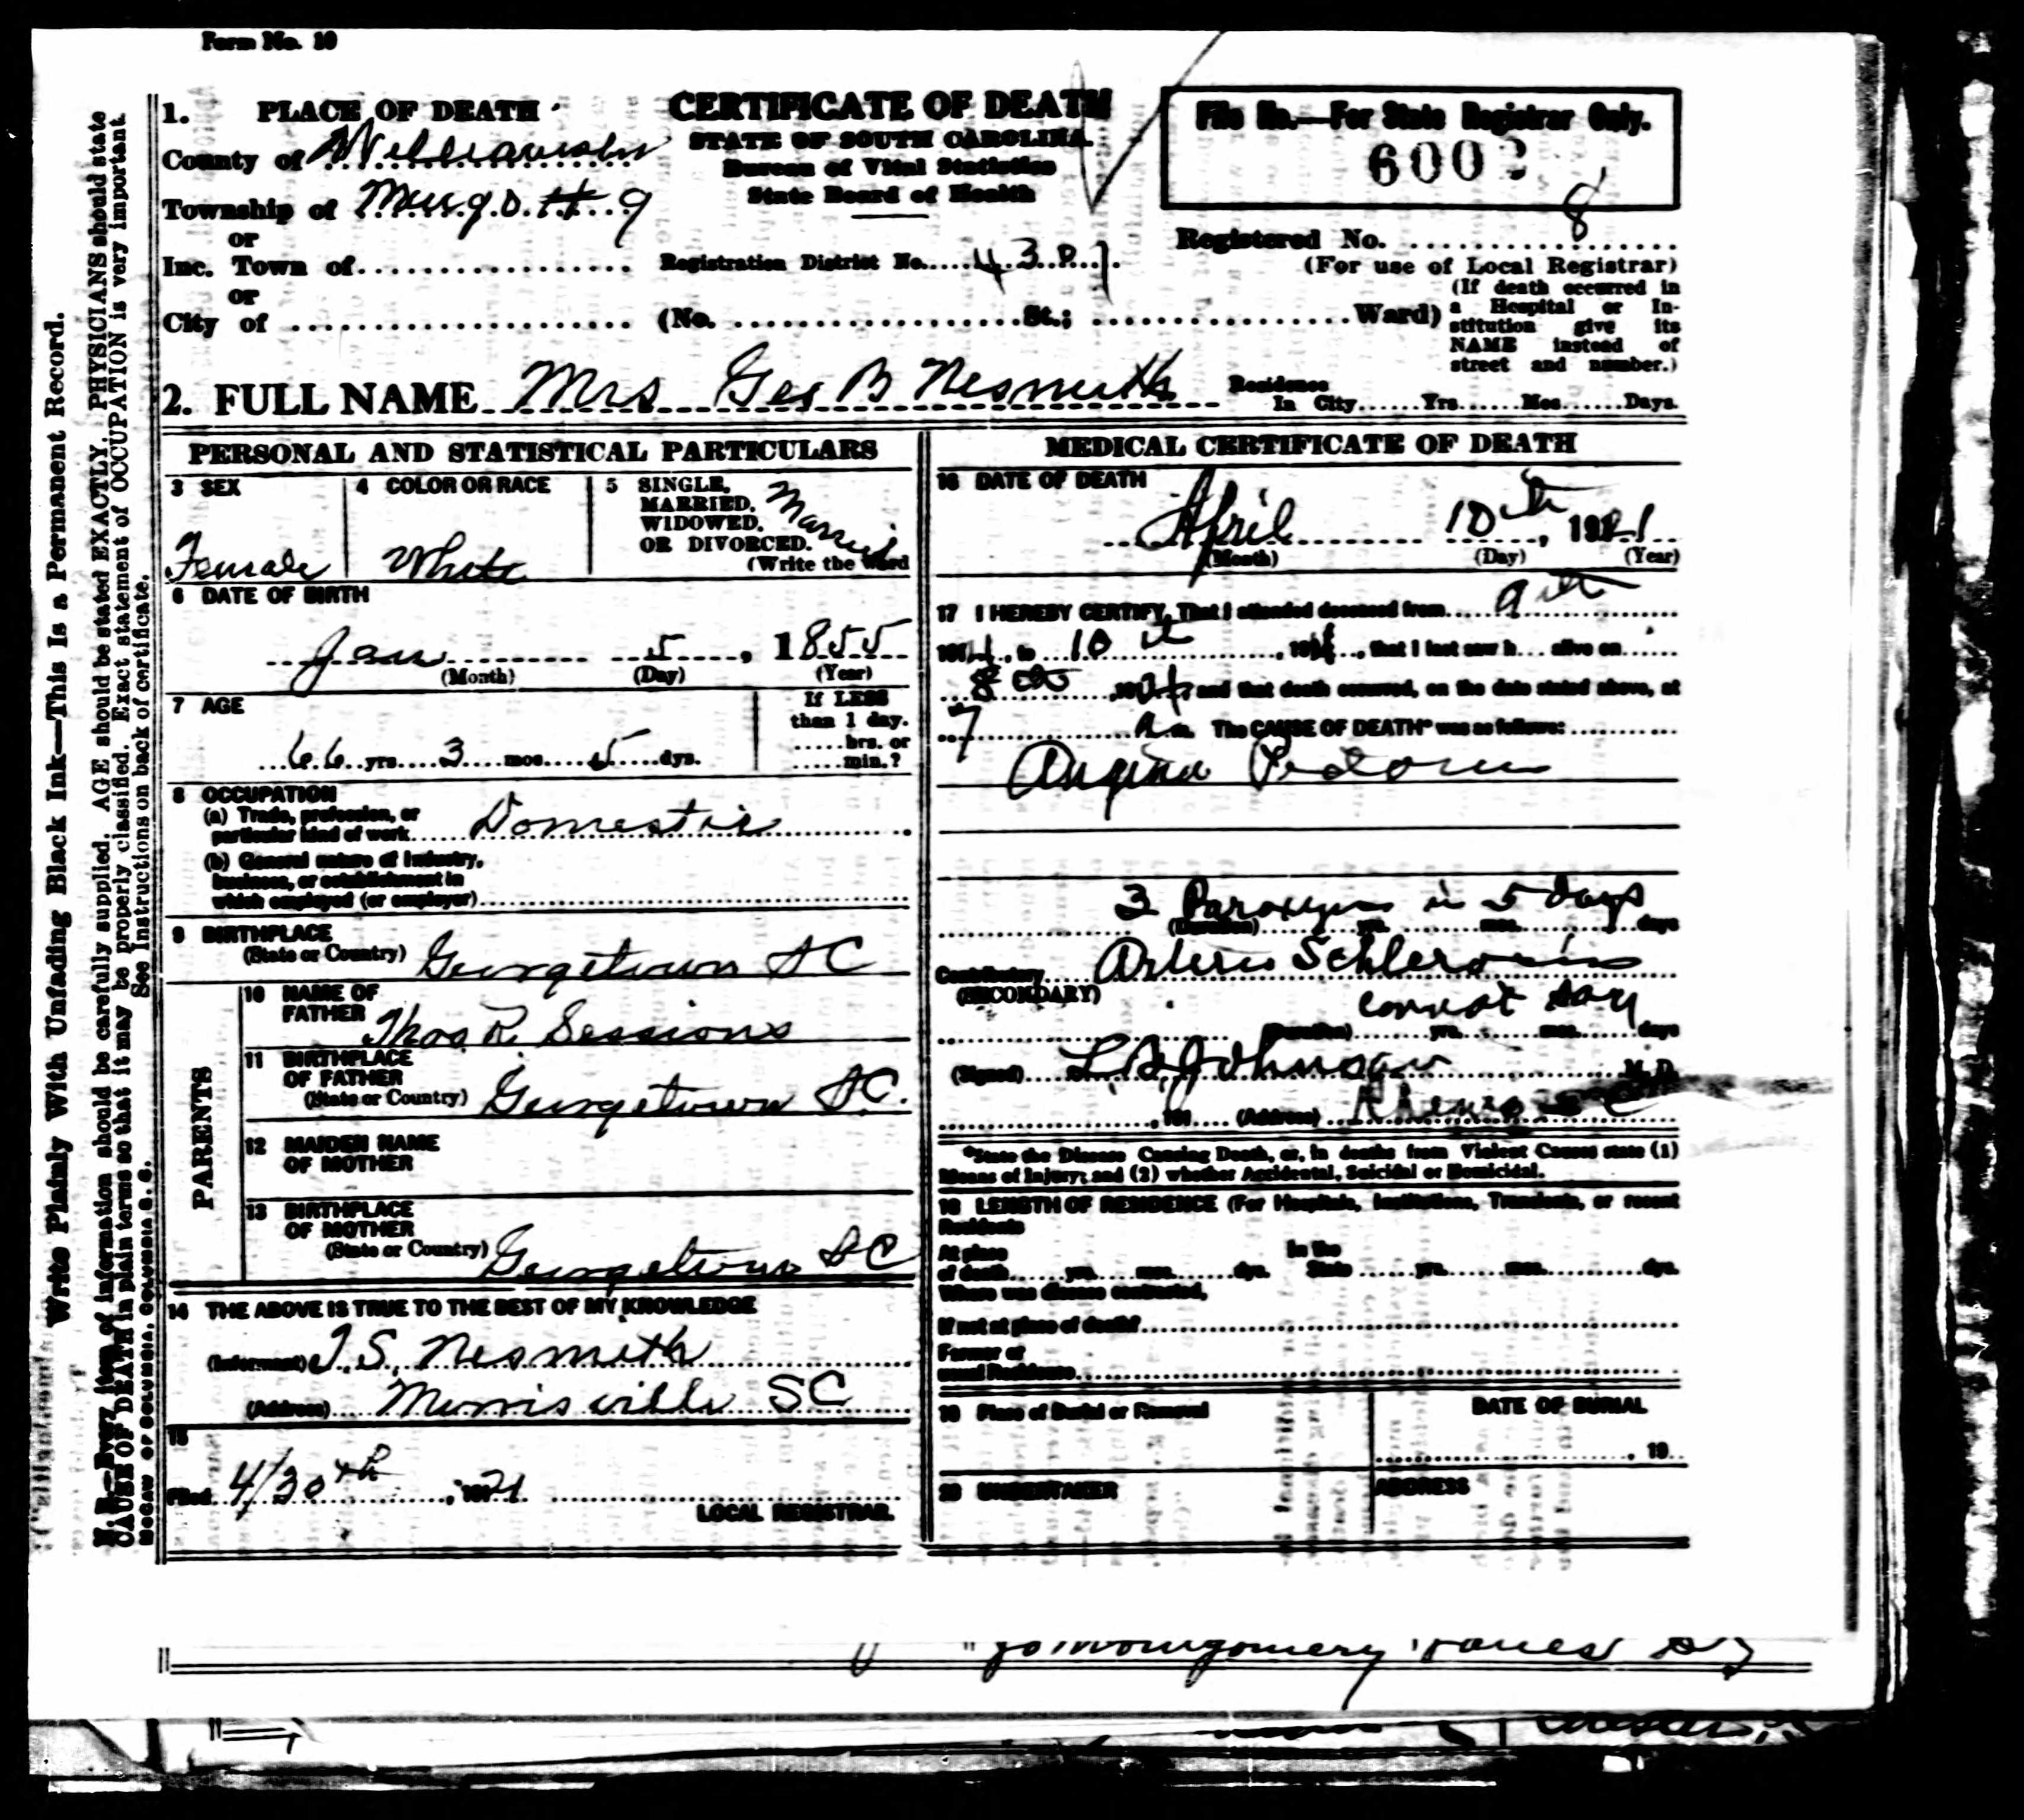 Form No. 10
1. PLACE OF DEATH
County of Williamsburg
Township of Mingo # 9
or
Inc. Town of
or
City of
CERTIFICATE OF DEATH
STATE OF SOUTH CAROLINA.
Bureau of Vital Statistics
State Board of Health
Registration District No. 4 3
(No. St.; Ward)
File No.—For State Registrar Only.
6002
Registered No. 8
(For use of Local Registrar)
(If death occurred in
a Hospital or In-
stitution give its
NAME instead of
street and number.)
2. FULL NAME Mrs Geo B Nesmith
Residence
In City Yrs Mos Days
PERSONAL AND STATISTICAL PARTICULARS
3 SEX
Female
4 COLOR OR RACE
White
5 SINGLE,
MARRIED,
WIDOWED,
OR DIVORCED.
(Write the word
Married
6 DATE OF BIRTH
Jan 5, 1855
(Month) (Day) (Year)
7 AGE
66 yrs 3 mos 5 dys.
If LESS
than 1 day.
hrs. or
min.?
8 OCCUPATION
(a) Trade, profession, or
particular kind of work Domestic
(b) General nature of Industry,
business, or establishment in
which employed (or employer)
9 BIRTHPLACE
(State or Country) Georgetown S C
PARENTS
10 NAME OF
FATHER Thos R Sessions
11 BIRTHPLACE
OF FATHER
(State or Country) Georgetown S C.
12 MAIDEN NAME
OF MOTHER
13 BIRTHPLACE
OF MOTHER
(State or Country) Georgetown S C
14 THE ABOVE IS TRUE TO THE BEST OF MY KNOWLEDGE
(Informant) J. S. Nesmith
(Address) Morrisville SC
15
Filed 4/30th, 1921
LOCAL REGISTRAR.
MEDICAL CERTIFICATE OF DEATH
16 DATE OF DEATH
April 10th, 1921
(Month) (Day) (Year)
17 I HEREBY CERTIFY, That I attended deceased from
to 10th, that I last saw h alive on
8th and that death occurred, on the date stated above, at
7 a m. The CAUSE OF DEATH* was as follows:
Angina Pectoris
3 Paroxysms in 5 days
(Duration) yrs. mos. days
Contributory Arterio Schlerosis
(SECONDARY)
cannot say
(Duration) yrs. mos. days
(Signed) L B Johnson M.D.
, 191 (Address) Rhems S C
*State the Disease Causing Death, or, in deaths from Violent Causes state (1)
Means of Injury; and (2) whether Accidental, Suicidal or Homicidal.
18 LENGTH OF RESIDENCE (For Hospitals, Institutions, Transients, or recent
Residents
At place
of death yrs. mos. dys.
In the
State yrs. mos. dys.
Where was disease contracted,
If not at place of death?
Former or
usual Residence
19 Place of Burial or Removal
DATE OF BURIAL
, 19
20 UNDERTAKER
ADDRESS
Write Plainly With Unfading Black Ink—This Is a Permanent Record.
N. B.—Every item of information should be carefully supplied. AGE should be stated EXACTLY. PHYSICIANS should state
CAUSE OF DEATH in plain terms so that it may be properly classified. Exact statement of OCCUPATION is very important.
See Instructions on back of certificate.
McCAW OF COLUMBIA, COLUMBIA S. C.
Montgomery